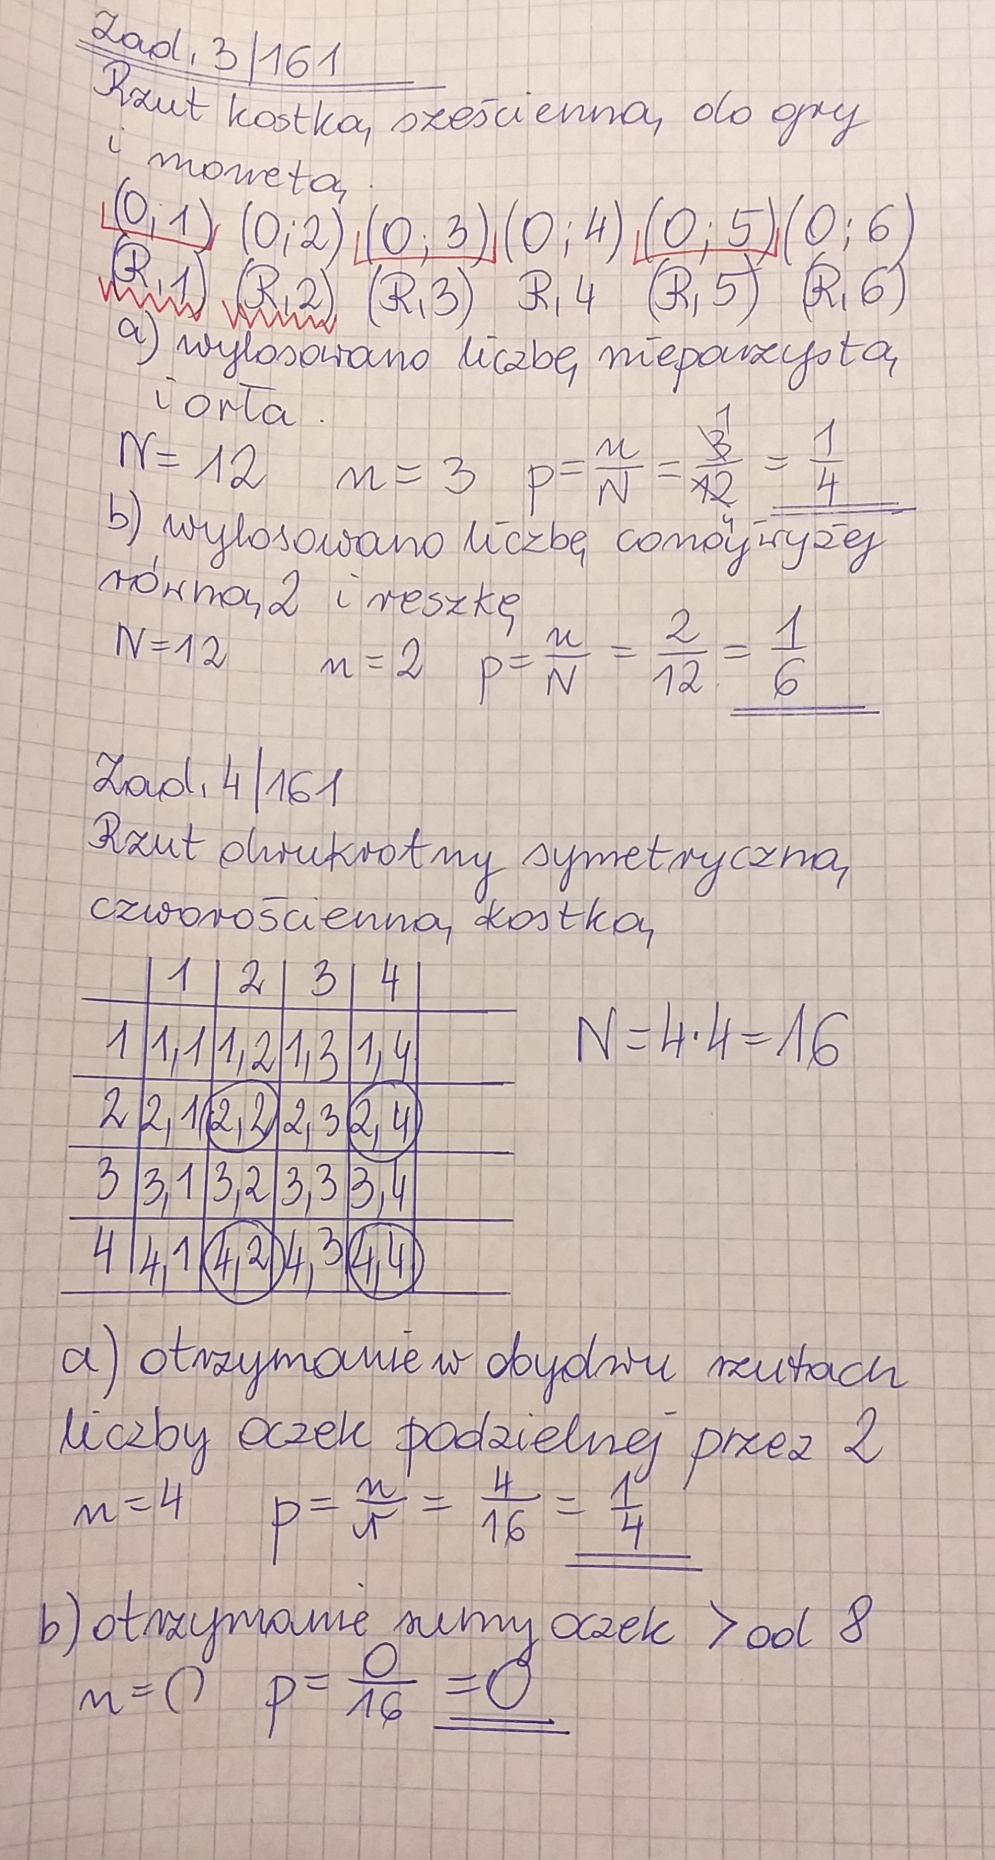 Zad. 3/161
Rzut kostką sześcienną do gry
i monetą.
(O;1) (O;2) (O;3) (O;4) (O;5) (O;6)
(R,1) (R,2) (R,3) R,4 (R,5) (R,6)
a) wylosowano liczbę nieparzystą
i orła.
N=12 n=3 p=n/N=3/12=1/4
b) wylosowano liczbę conajwyżej
równą 2 i reszkę
N=12 n=2 p=n/N=2/12=1/6
Zad. 4/161
Rzut dwukrotny symetryczną
czworościenną kostką
1 2 3 4
1 1,1 1,2 1,3 1,4
N=4·4=16
2 2,1 2,2 2,3 2,4
3 3,1 3,2 3,3 3,4
4 4,1 4,2 4,3 4,4
a) otrzymanie w obydwu rzutach
liczby oczek podzielnej przez 2
n=4 p=n/N=4/16=1/4
b) otrzymanie sumy oczek > od 8
n=0 p=0/16=0